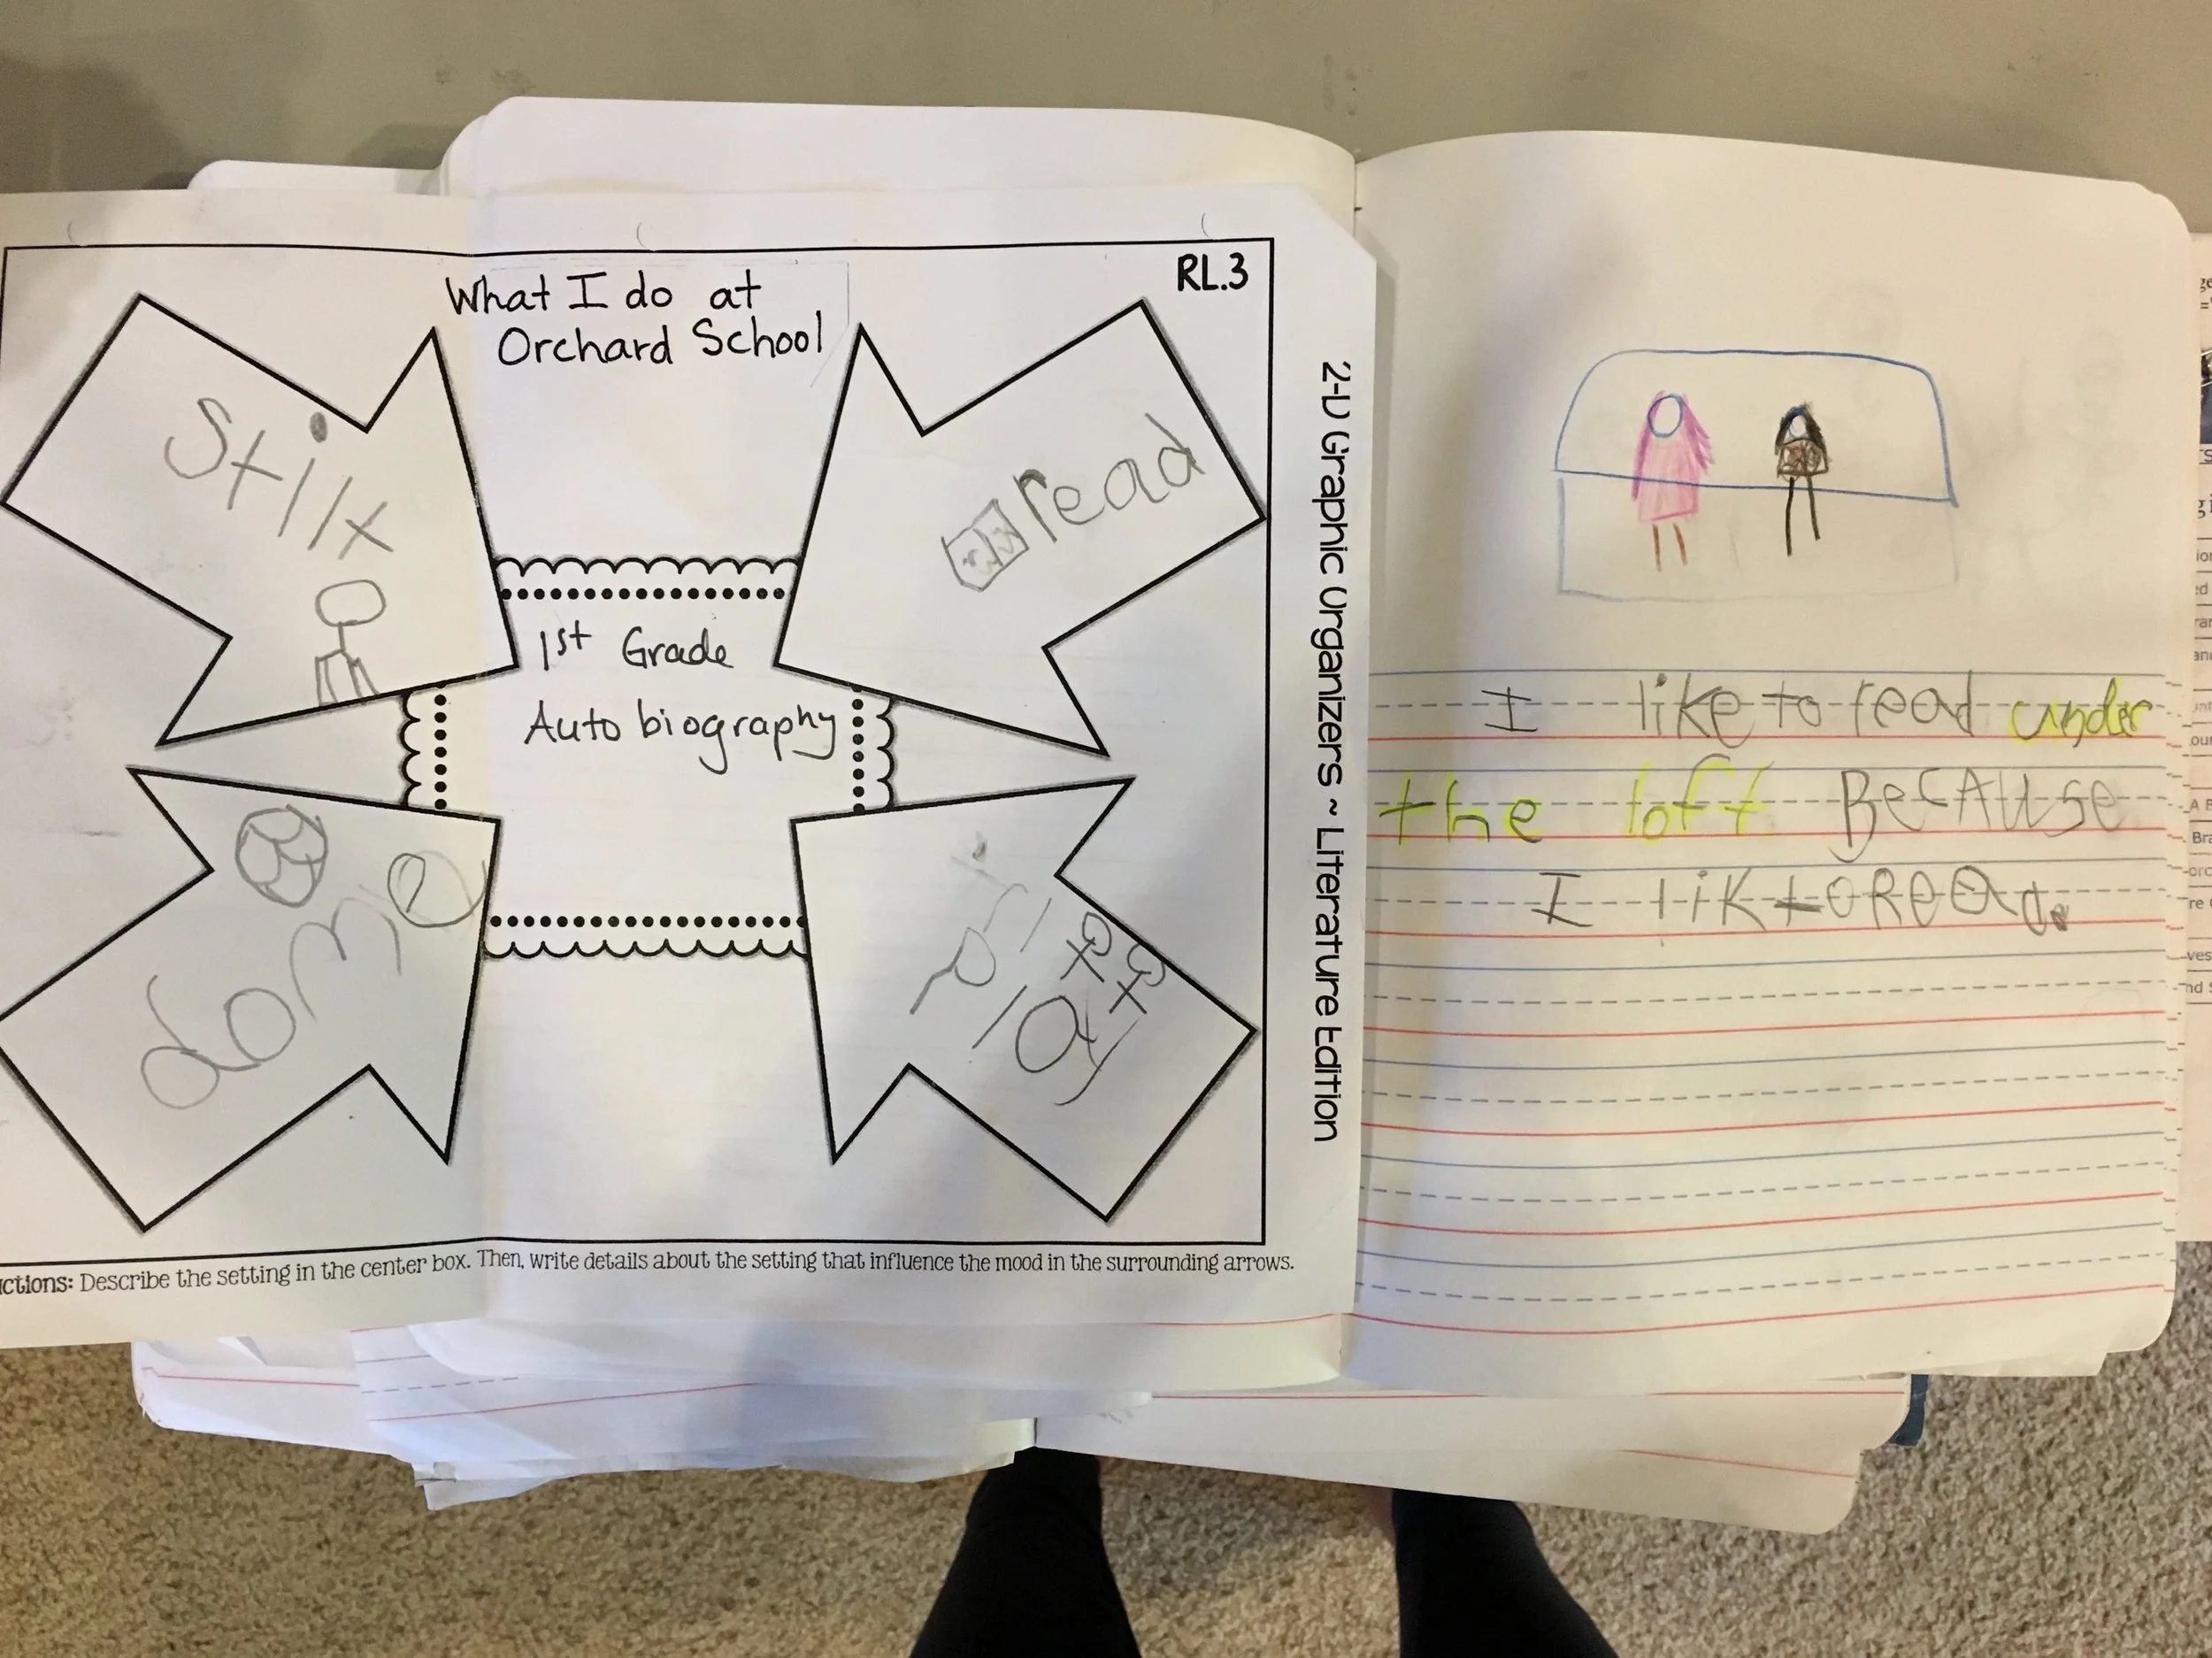 What I do at
Orchard School
RL.3
Stilt
read
1st Grade
Auto biography
dome
play
ctions: Describe the setting in the center box. Then, write details about the setting that influence the mood in the surrounding arrows.
2-D Graphic Organizers ~ Literature Edition
I like to read under
the loft BecAuse
I lik to ReAd.